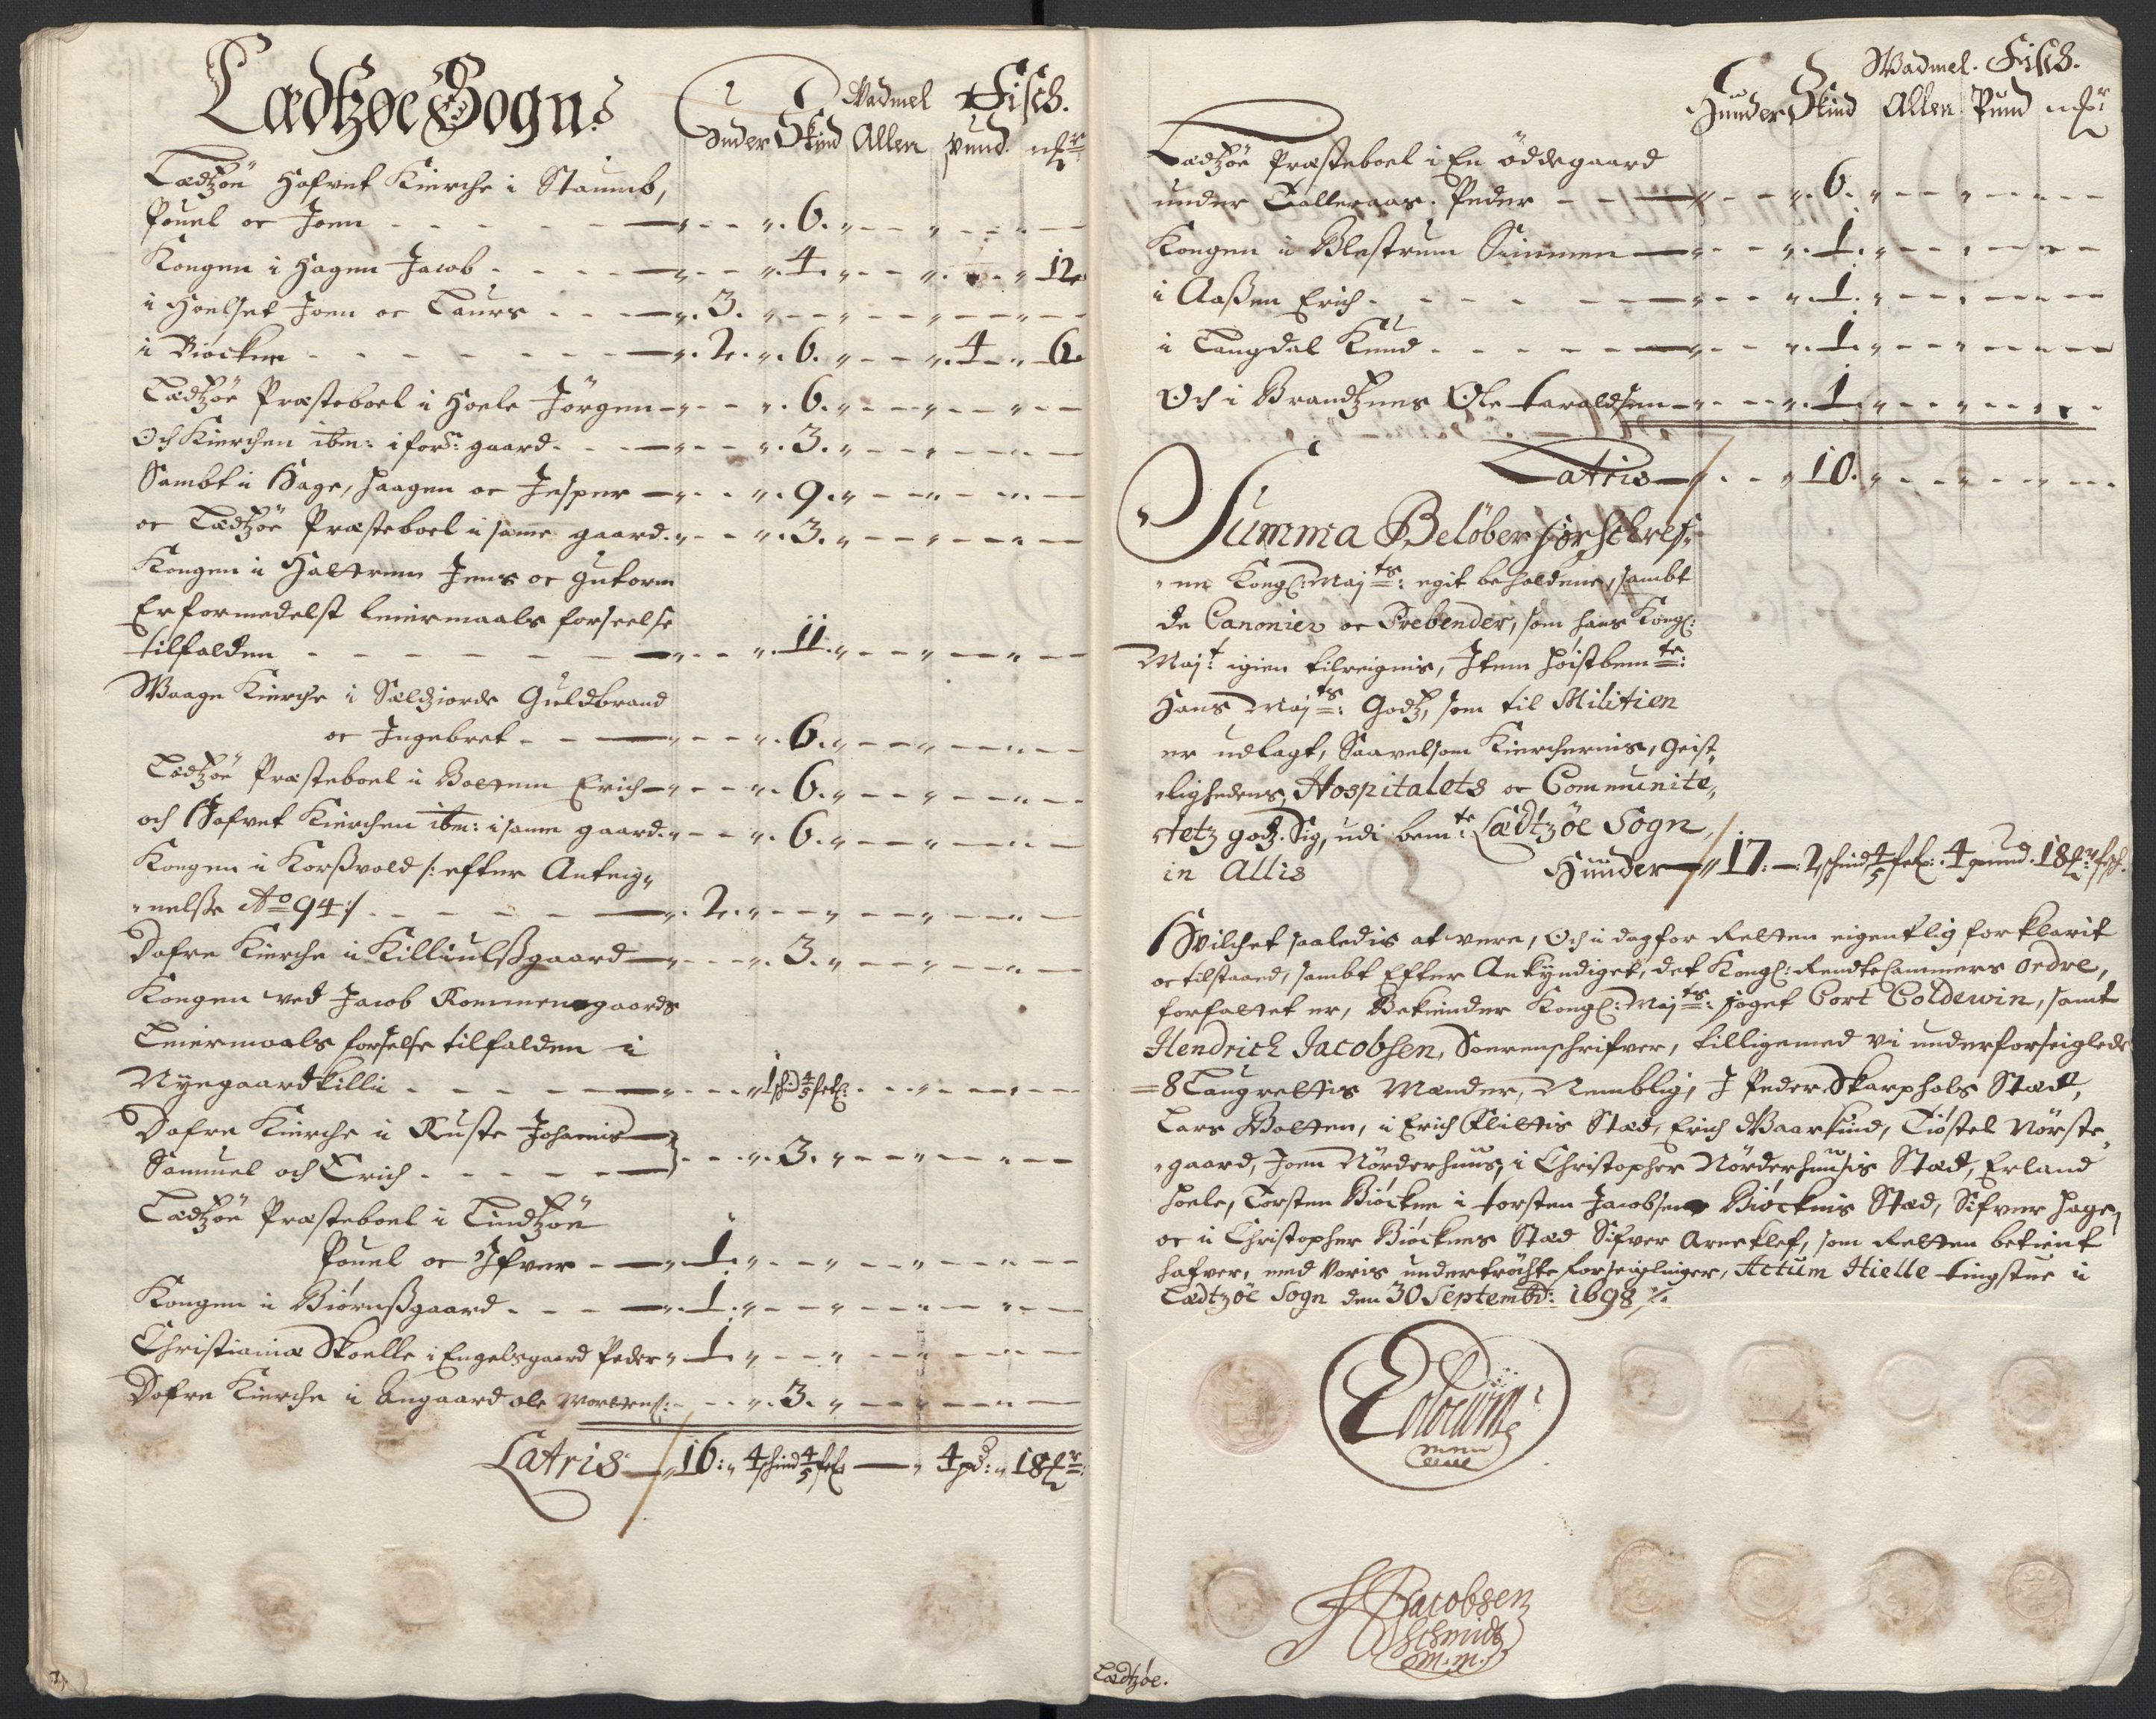 Lædtzøe Sogn
Wadmel Fisch.
Huder Skind Allen pund. mkr
Lædtzöe Hofvet Kierche i Staumb,
Pouel oc Joen - - - „ - - „ . 6. „ - - „ - - „ -
Kongen i Hagen Jacob - - - „ - - „ . 4. „ - - „ . - „ 12.
i Hoelset Joen oc Laurs - - - „ . 3. „ - - „ - - „ - - „ -
i Biocknee - - - „ . 2. „ . 6. „ - - „ . 4 . „ 6.
Lædtzöe Præsteboel i Hoele Jörgen - „ - - „ . 6. „ - - „ - - „ - -
Och Kierchen ibm: i forde: gaard - - - „ - - „ . 3. „ - - „ - - „ -
Sambt i Hage, Haagen oc Jesper - „ - - „ . 9. „ - - „ - - „ -
oc Lædtzöe Præsteboel i samme gaard. „ - - „ . 3. „ - - „ - - „ -
Kongen i Haltrum Jens oc Gutorm
Er formedelst leiermaals forseelse
tilfalden - - - „ - - „ . 11. „ - - „ - - „ -
Waage Kierche i Sældziorde Guldbrand
oc Ingebret - - - „ - - „ . 6. „ - - „ - - „ -
Lædtzöe Præsteboel i Boltrum Erich - „ - - „ . 6. „ - - „ - - „ -
och Hofvet Kierchen ibm: i samme gaard. „ - - „ . 6. „ - - „ - - „ -
Kongen i Korßvold /: efter Anteig„
„nelsse Ao 94 :/ - - - „ . 2. „ - - „ - - „ - - „ -
Dofre Kierche i Killiulßgaard - „ - - „ . 3. „ - - „ - - „ -
Kongen ved Jacob Rommengaards
Leiermaals forseelse tilfalden i
Nyegaardkilli - - - „ - - „ 1 skind 4/5 fel: - - „ - - „ -
Dofre Kierche i Ruste Johannis
Samuel och Erich - - - „ . 3. „ - - „ - - „ -
Lædtzöe Præsteboel i Lindtzöe
Pouel oc Ifver - - „ . 1. „ - - „ - - „ - - „ -
Kongen i Biörnßgaard - - - „ . 1. „ - - „ - - „ - - „ -
Christianiæ Skoelle i Engelsgaard Peder „ . 1. „ - - „ - - „ - -
Dofre Kierche i Angaard Ole Mortens: - - „ . 3. „ - - „ - - „ -
Latris - „ 16: „ 4 skind 4/5 fel: — „ 4 pd: „ 18 mkr:
Wadmel. Fisch.
Hunder Skind Allen Pund mkr
Lædtzöe Præsteboel i En öddegaard
under Talleraas. Peder - - - „ - - „ . 6. „ - - „ - - -
Kongen i Blestrum Simmen - „ - - „ . 1. „ - - „ - - -
i Aaßen Erich - - - „ - - „ . 1. „ - - „ - - -
i Langdal Knud - - - „ - - „ . 1. „ - - „ - - -
Och i Brandtznes Ole taraldsen - „ - - „ . 1. „ - - „ - - -
Latris - „ - - „ 10. „ - - „ - - -
Summa Belöber forschref„
„ne Kongl: Majts: egit beholdene, sambt
de Canonier oc Prebender, som hans Kongl:
Majt: igien tilreignis, Item höistbemte:
Hans Majts: Godtz, som til Militien
er udlagt, Saavelsom Kierchernis, Geist„
„lighedens, Hospitalets oc Communite„
„tetz godtz. Sig, udi bemte: Lædtzöe Sogn
in Allis Hunder - „ 17: — : 2 skind 4/5 fel: 4 pund. 18 mkr fisch.
Hvilchet saaledis at vere, Och i dag for Retten eigentlig forklarit
oc tilstaaed, sambt Efter Ankyndiget, det Kongl: Rendtecammers ordre,
forfattet er, Bekiender Kongl: Majts: foget Cort Coldewin, samt
Hendrich Jacobsen, Sorenschrifver, tilligemed vi underforseiglede
= 8 Laugrettis Mænder, Nemblig, J Peder Skarphols Stæd,
Lars Boltten, i Erich Flittis Stæd, Erich Waarkind, Tiöstel Nörste„
„gaard, Joen Nörderhuus, i Christopher Nörderhuusis Stæd, Erland
Hoele, Torsten Biöcknee i torsten Jacobsen Biöcknis Stæd, Sifver Hage,
oc i Christopher Biöcknes Stæd Sifver Arneklef, som Retten betient
hafver, med Voris undertröchte forseiglinger, Actum Hielle tingstue i
Lædtzöe Sogn den 30 Septembr: 1698 /.
Coldewin
H Jacobsen
Schmidt
m.m.
Lædtzöe.